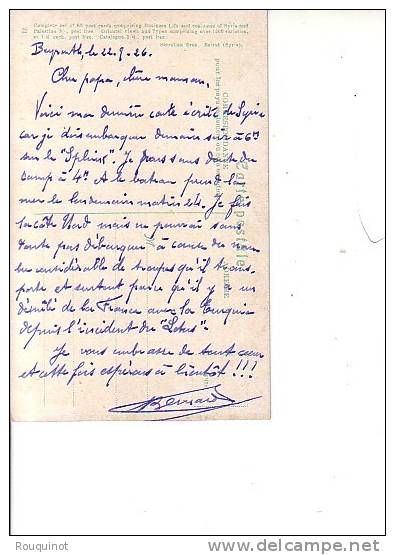 Complete set of 60 post cards comprising Business Life and costumes of Syria and
Palestine post free. Oriental views and Types comprising over 1000 variation,
at 1 d each, post free. Catalogue 3 d. post free
Sarrafian Bros. Beirut (Syria).
Beyrouth, le 22.9.26.
Cher papa, chère maman,
Voici ma dernière carte écrite de Syrie
car je désembarque demain soir à 6h
sur le "Sphinx". Je pars sans doute du
camp à 4h. Et le bateau prend la
mer le lendemain matin 24. Je fais
la côte Nord mais ne pourrai sans
doute pas débarquer à cause du nom
bre considérable de troupes qu'il trans-
porte et surtout parce qu'il y a un
démêlé de la France avec la Turquie
depuis l'incident du "Lotus".
Je vous embrasse de tout cœur
et cette fois espérons à bientôt !!!
Bernard
Carte postale
CORRESPONDANCE
ADRESSE
Rouquinot
delcampe.net